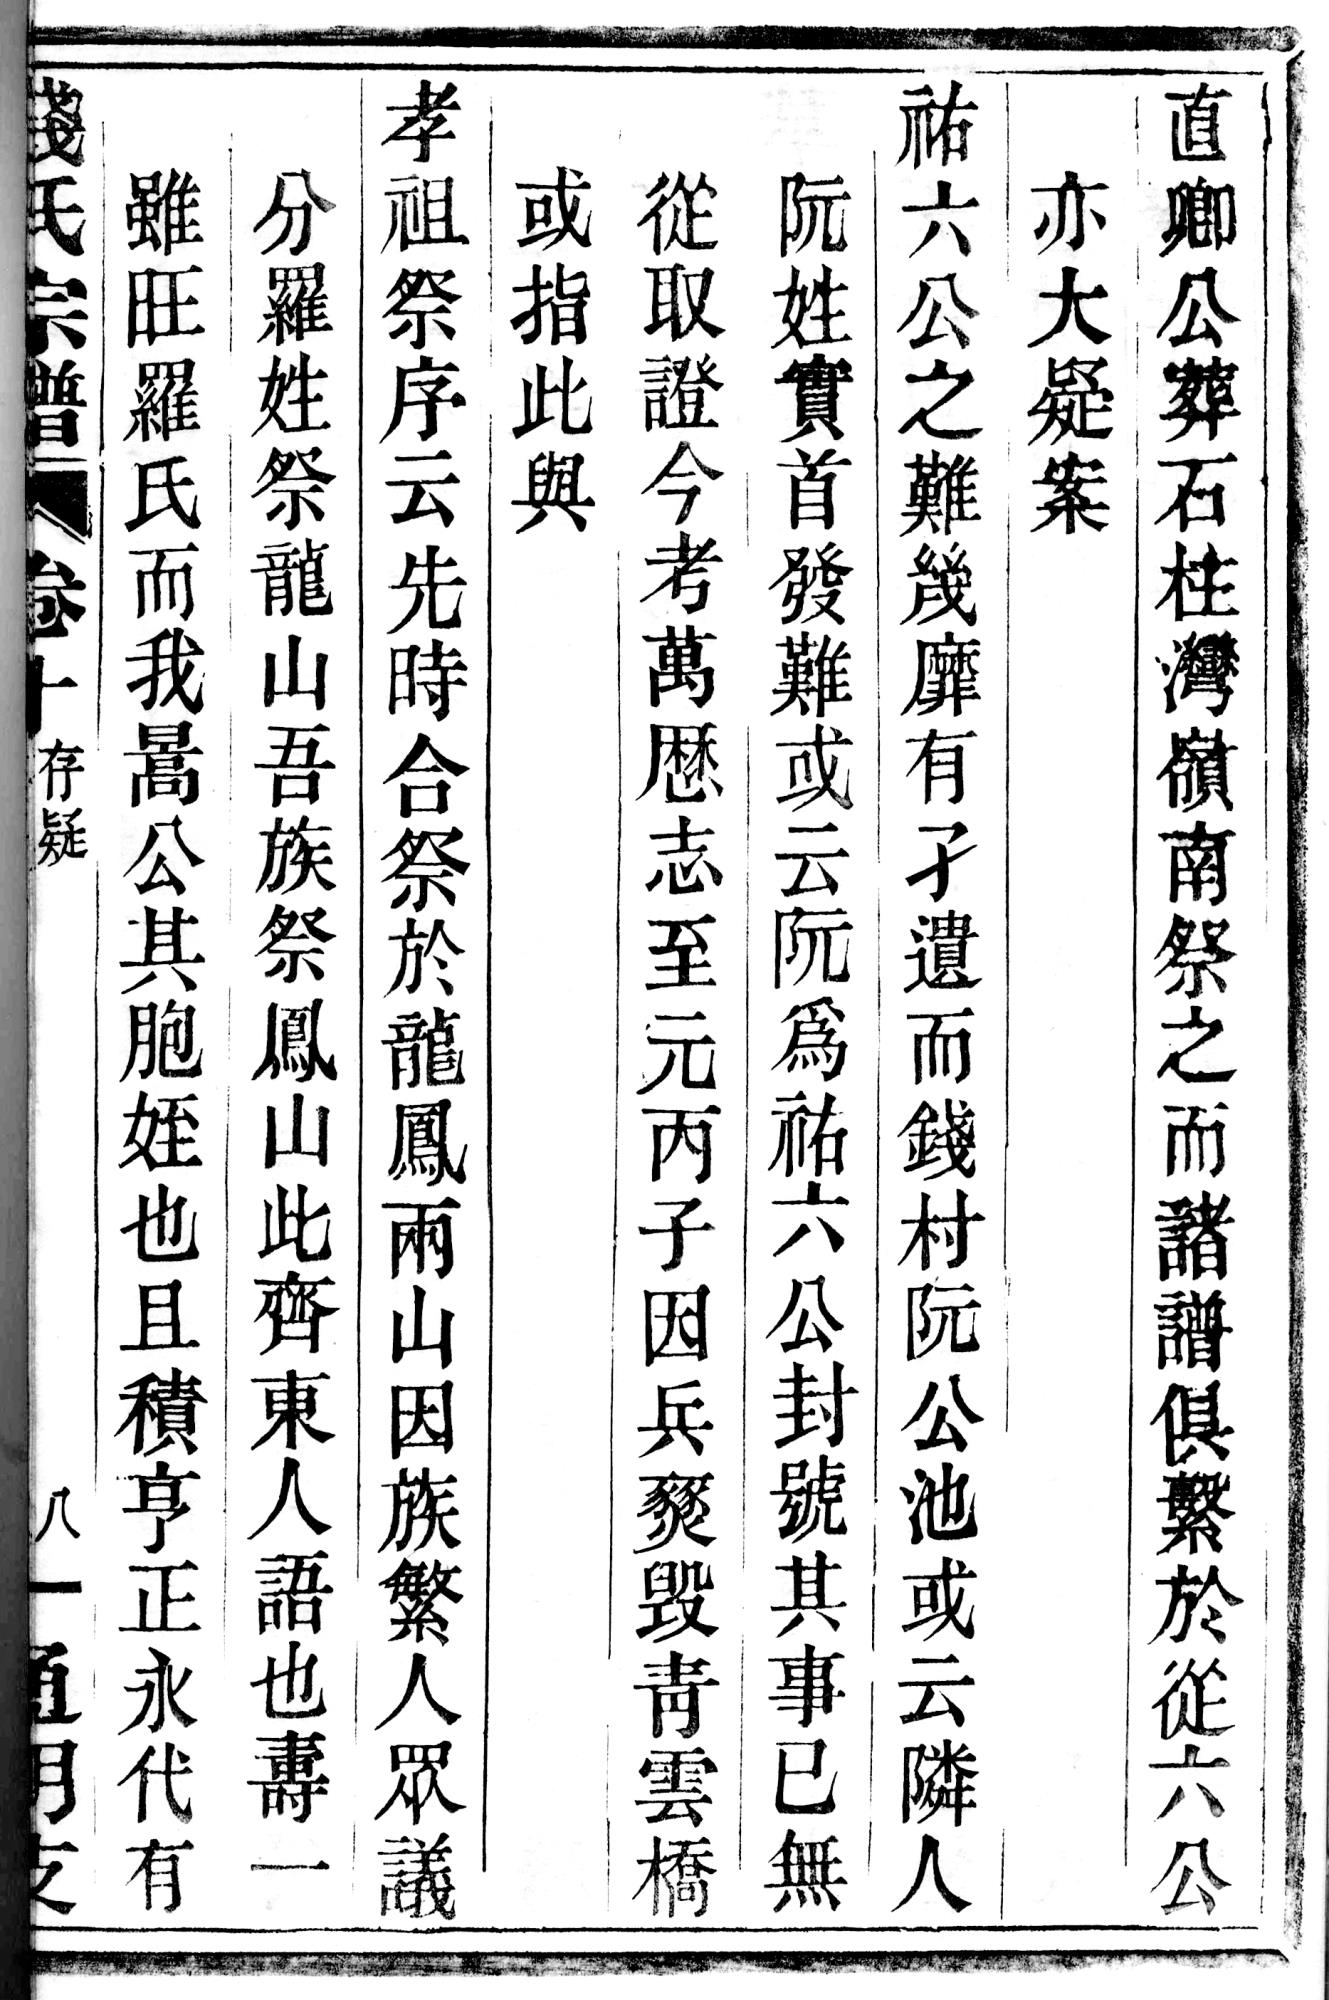 直卿公葬石柱灣嶺南祭之而諸譜俱繫於從六公
亦大疑案
祐六公之難幾靡有孑遺而錢村阮公池或云隣人
阮姓實首發難或云阮爲祐六公封號其事已無
從取證今考萬厯志至元丙子因兵燹毀靑雲橋
或指此與
孝祖祭序云先時合祭於龍鳳兩山因族繁人眾議
分羅姓祭龍山吾族祭鳳山此齊東人語也壽一
雖旺羅氏而我暠公其胞姪也且積亨正永代有
錢氏宗譜 卷十 存疑 八一 通明支